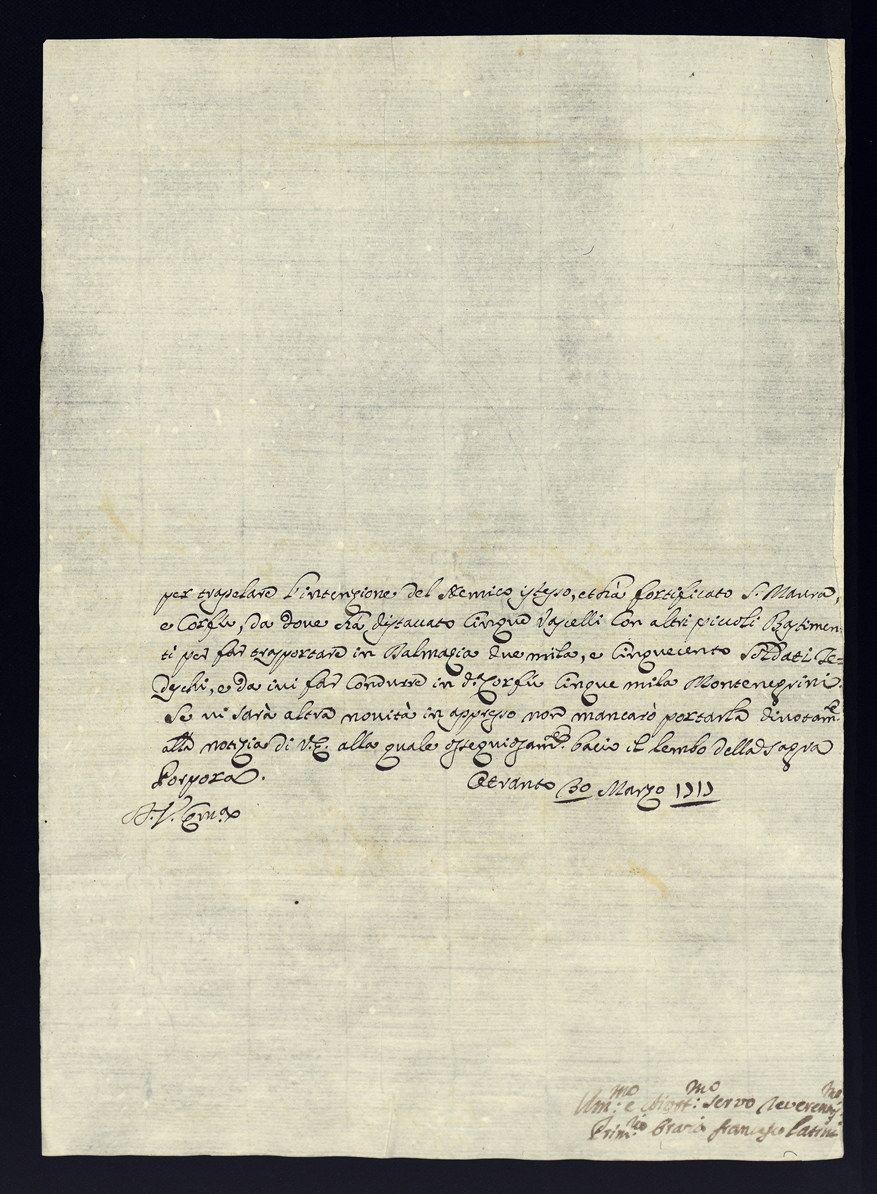 per trapelare l'intenzione del Nemico istesso, et hà fortificato S. Maura,
e Corfù, da dove hà distacato Cinque Vascelli con altri piccoli Bastimen-
ti per far trasportare in Dalmazia due mila, e Cinquecento Soldati Te=
deschi, e da ivi far condurre in d.º Corfù Cinque mila Montenegrini.
Se vi sarà altra novità in appresso non mancarò portarla divotam.te
alla notizia di V.E. alla quale ossequiosam.te bacio il lembo della Sagra
Porpora.
Otranto 30 Marzo
S. V. Em.a
Um:mo e Divot:mo servo Reverentis.mo
Francesco Latini